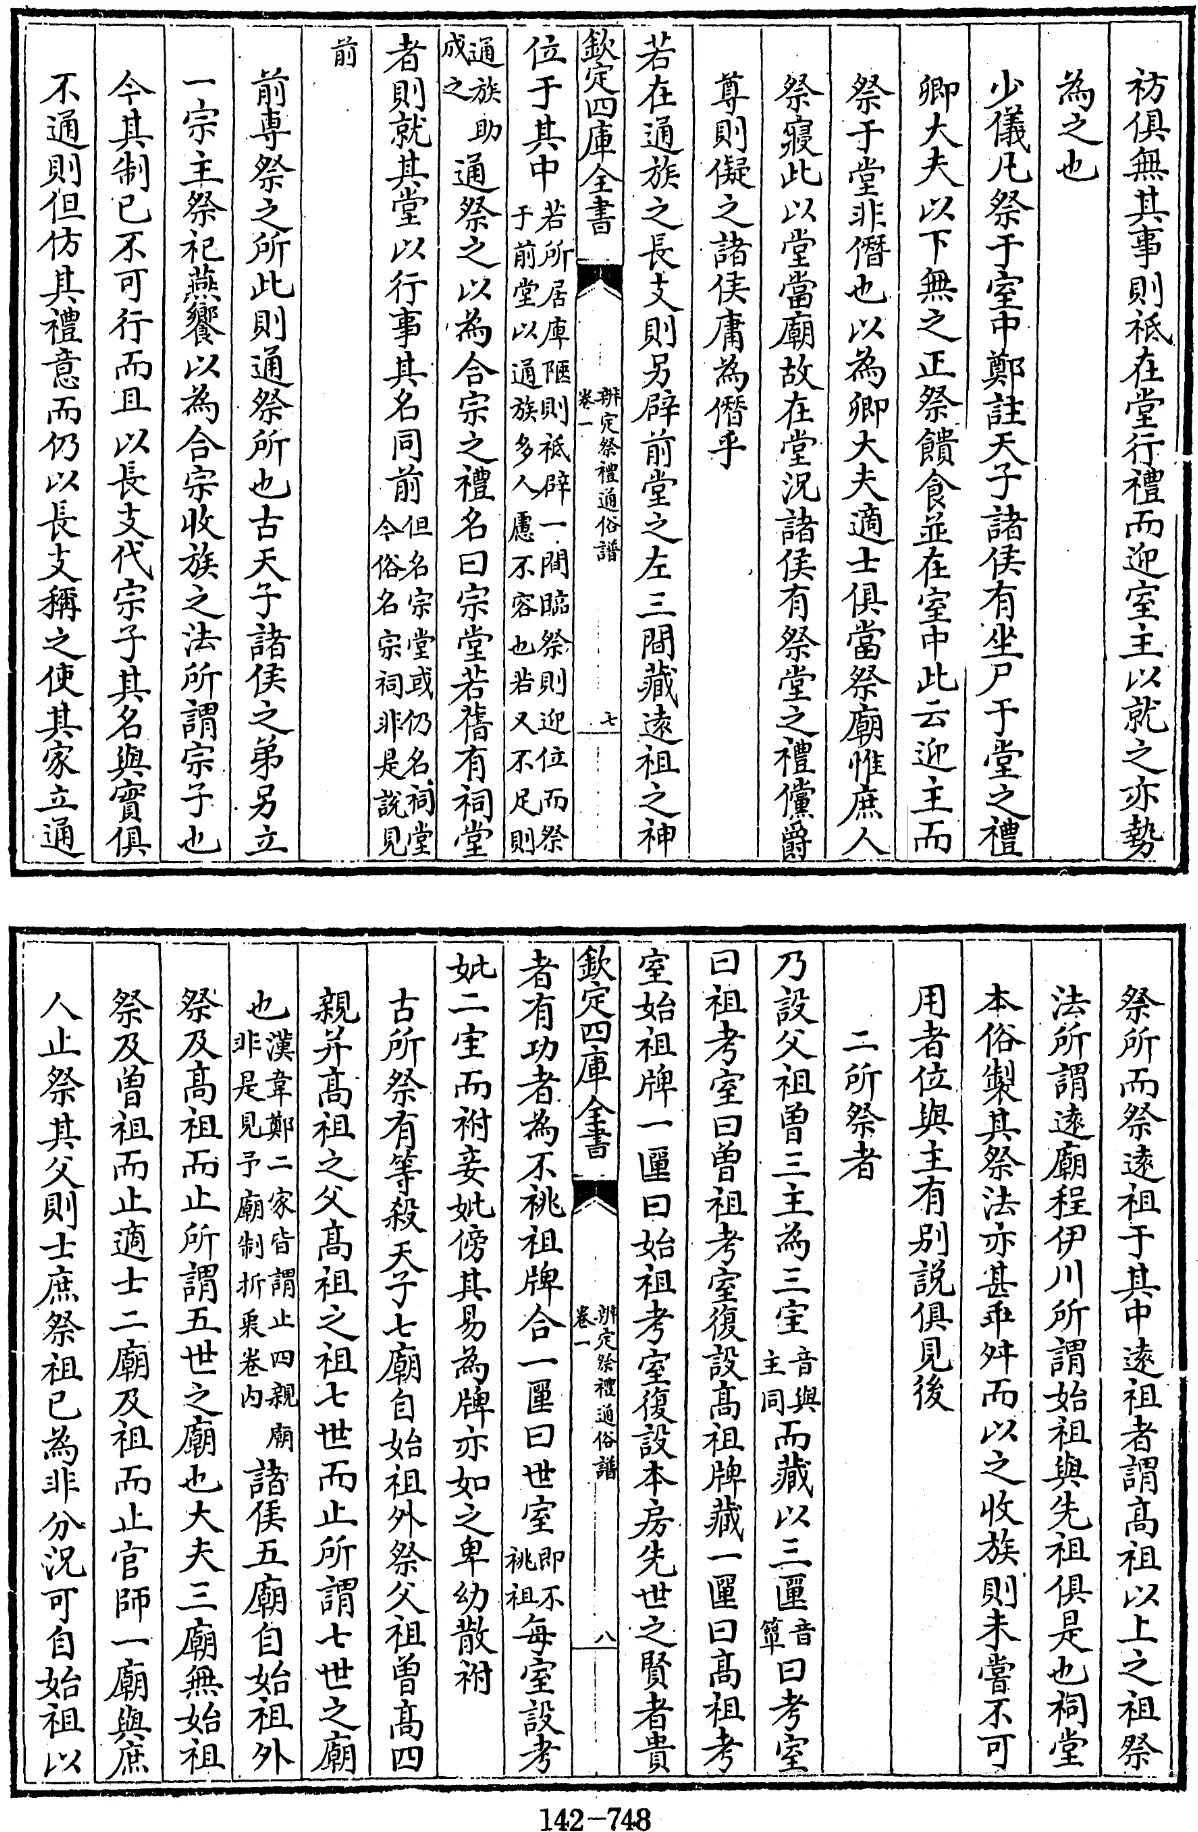 祊俱無其事則祗在堂行禮而迎室主以就之亦勢
為之也
少儀凡祭于室中鄭註天子諸侯有坐尸于堂之禮
卿大夫以下無之正祭饋食並在室中此云迎主而
祭于堂非僭也以為卿大夫適士俱當祭廟惟庶人
祭寢此以堂當廟故在堂況諸侯有祭堂之禮儻爵
尊則儗之諸侯庸為僭乎
若在通族之長支則另辟前堂之左三間藏遠祖之神
欽定四庫全書
辨定祭禮通俗譜
卷一
七
位于其中若所居庳陋則祗辟一間臨祭則迎位而祭于前堂以通族多人慮不容也若又不足則
通族助成之通祭之以為合宗之禮名曰宗堂若舊有祠堂
者則就其堂以行事其名同前但名宗堂或仍名祠堂今俗名宗祠非是說見
前
前專祭之所此則通祭所也古天子諸侯之弟另立
一宗主祭祀燕饗以為合宗收族之法所謂宗子也
今其制已不可行而且以長支代宗子其名與實俱
不通則但仿其禮意而仍以長支稱之使其家立通
祭所而祭遠祖于其中遠祖者謂髙祖以上之祖祭
法所謂遠廟程伊川所謂始祖與先祖俱是也祠堂
本俗製其祭法亦甚乖舛而以之收族則未嘗不可
用者位與主有別說俱見後
二所祭者
乃設父祖曽三主為三宔音與主同而藏以三匰音簞曰考室
曰祖考室曰曽祖考室復設髙祖牌藏一匰曰髙祖考
室始祖牌一匰曰始祖考室復設本房先世之賢者貴
欽定四庫全書
辨定祭禮通俗譜
卷一
八
者有功者為不祧祖牌合一匰曰世室即不祧祖每室設考
妣二宔而祔妾妣傍其易為牌亦如之卑幼散祔
古所祭有等殺天子七廟自始祖外祭父祖曽髙四
親并髙祖之父髙祖之祖七世而止所謂七世之廟
也漢韋鄭二家皆謂止四親廟非是見予廟制折衷卷内諸侯五廟自始祖外
祭及髙祖而止所謂五世之廟也大夫三廟無始祖
祭及曽祖而止適士二廟及祖而止官師一廟與庶
人止祭其父則士庶祭祖已為非分況可自始祖以
142-748